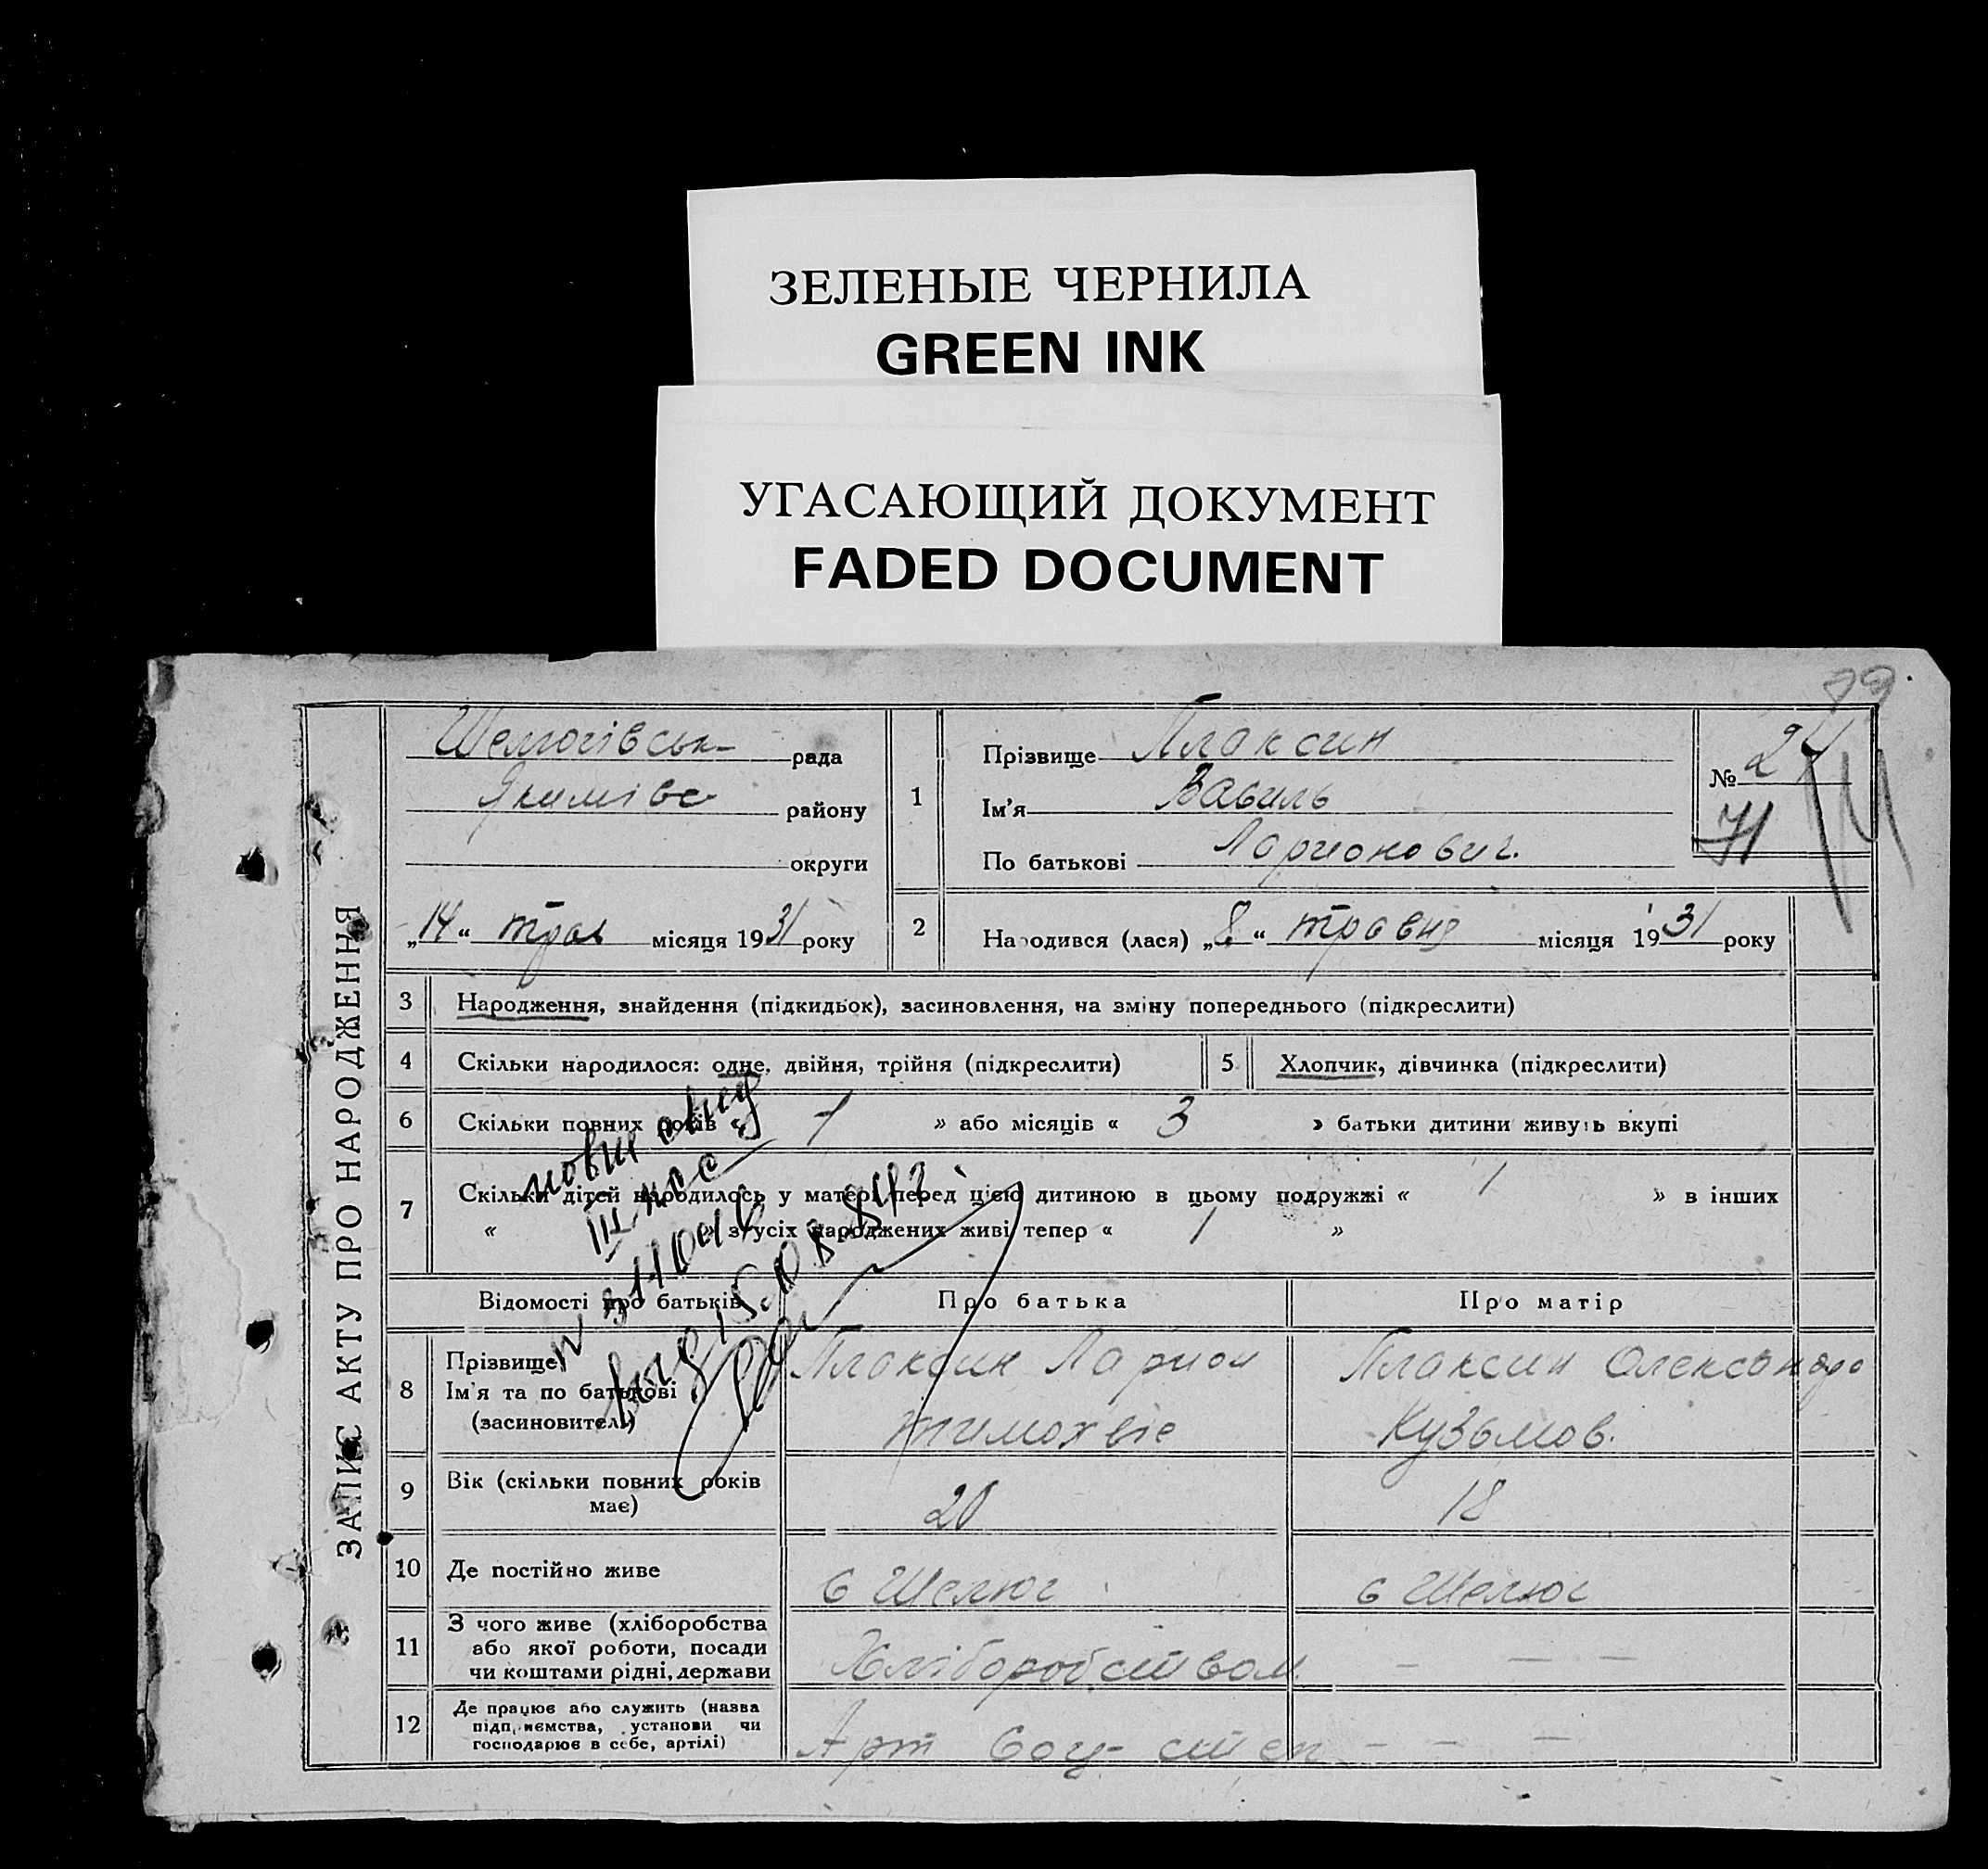 ЗЕЛЕНЫЕ ЧЕРНИЛА
GREEN INK
УГАСАЮЩИЙ ДОКУМЕНТ
FADED DOCUMENT
ЗАПИС АКТУ ПРО НАРОДЖЕННЯ
рада
району
округи
„14“ трав місяця 1931 року
1
Прізвище Плаксин
Ім'я Василь
По батькові Ларионович.
№ 24
71
2
Народився (лася) „8“ травня місяця 1931 року
3 Народження, знайдення (підкидьок), засиновлення, на зміну попереднього (підкреслити)
4 Скільки народилося: одне, двійня, трійня (підкреслити)
5 Хлопчик, дівчинка (підкреслити)
6 Скільки повних років « 1 » або місяців « 3 » батьки дитини живуть вкупі
7 Скільки дітей народилось у матері перед цією дитиною в цьому подружжі « 1 » в інших
« » з усіх народжених живі тепер « 1 »
Відомості про батьків
Про батька
Про матір
8
Прізвище
Ім'я та по батькові
(засиновител.)
Плаксин Ларион
Тимохвіє
Плаксин Олександра
Кузьмов.
9
Вік (скільки повних років
має)
20
18
10 Де постійно живе
с Шелюг
с Шелюг
11
З чого живе (хліборобства
або якої роботи, посади
чи коштами рідні, держави
Хліборобством
— — —
12
Де працює або служить (назва
підприємства, установи чи
господарює в себе, артілі)
Арт Соц- степ
— — —